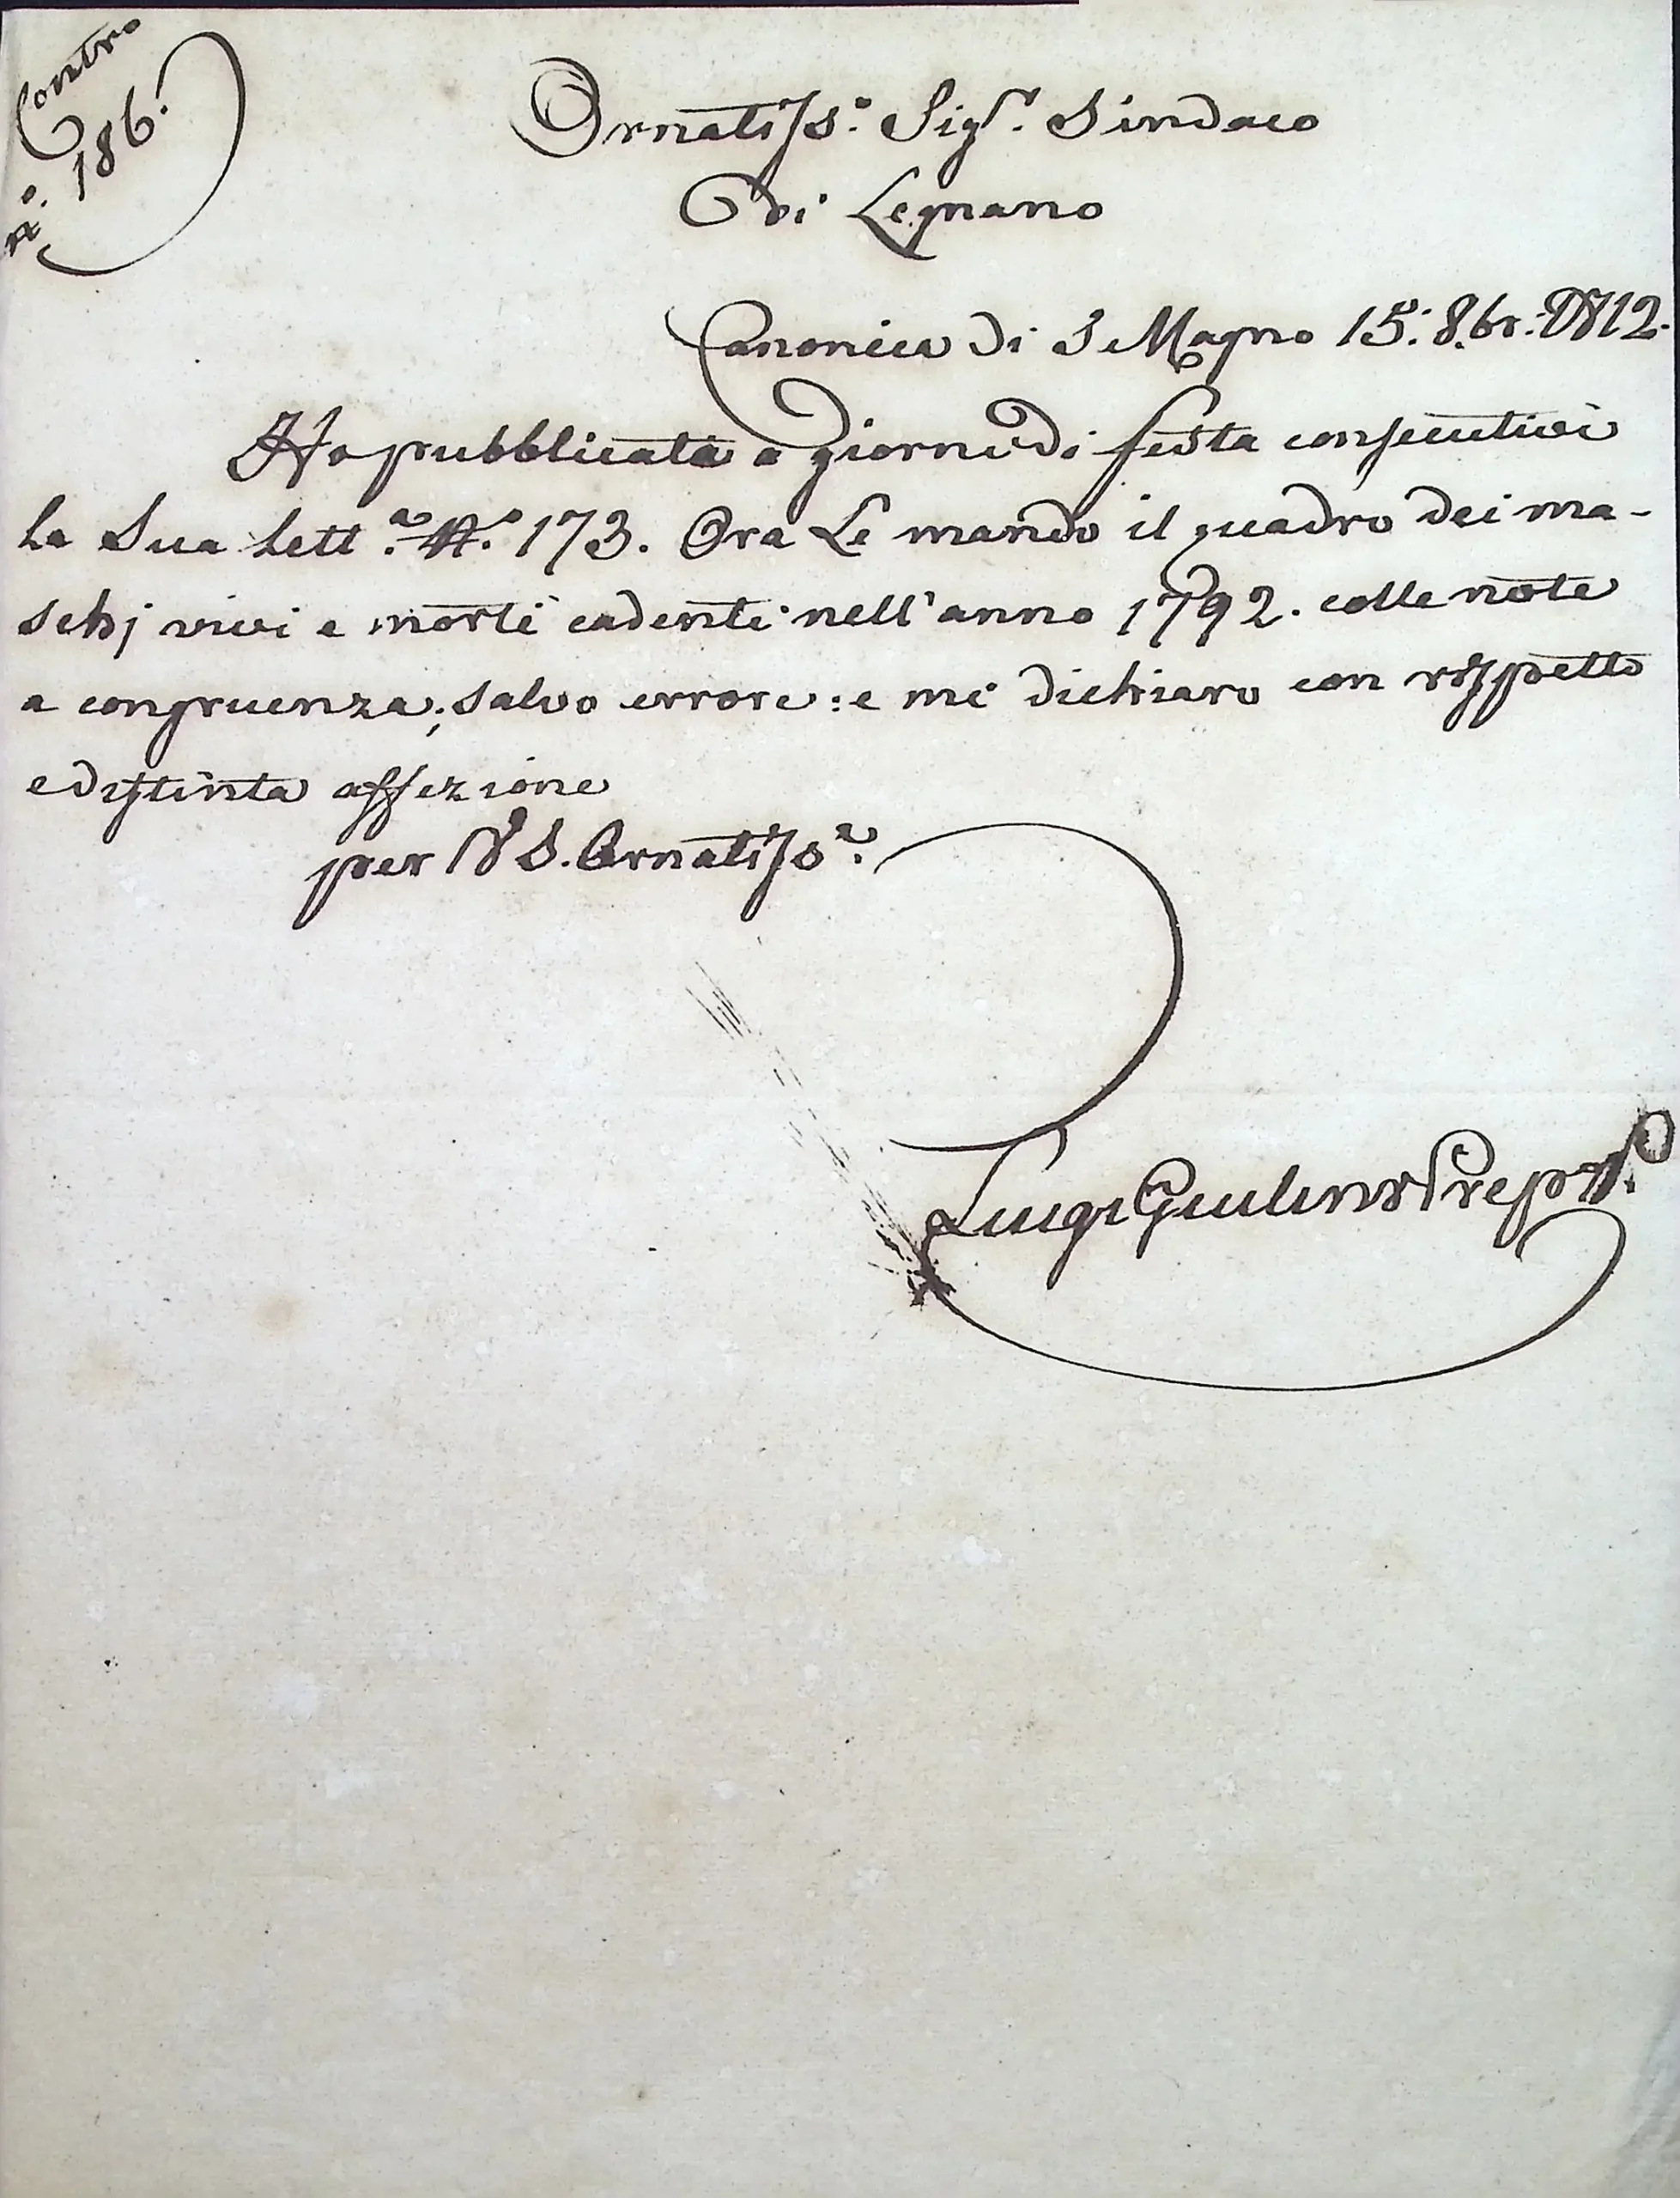 Contro
N.º 186.
Ornatiss.º Sig.r Sindaco
di Legnano
Canonica di S Magno 15. 8.br. 1812.
Ho pubblicata a giorni di festa consecutivi
la Sua Lett.ª N.º 173. Ora Le mando il quadro dei ma-
schj vivi e morti cadenti nell'anno 1792. colle note
a congruenza; salvo errore: e mi dichiaro con rispetto
e distinta affezione
per V S. Ornatiss.ª
Luigi Giulini Prep.to